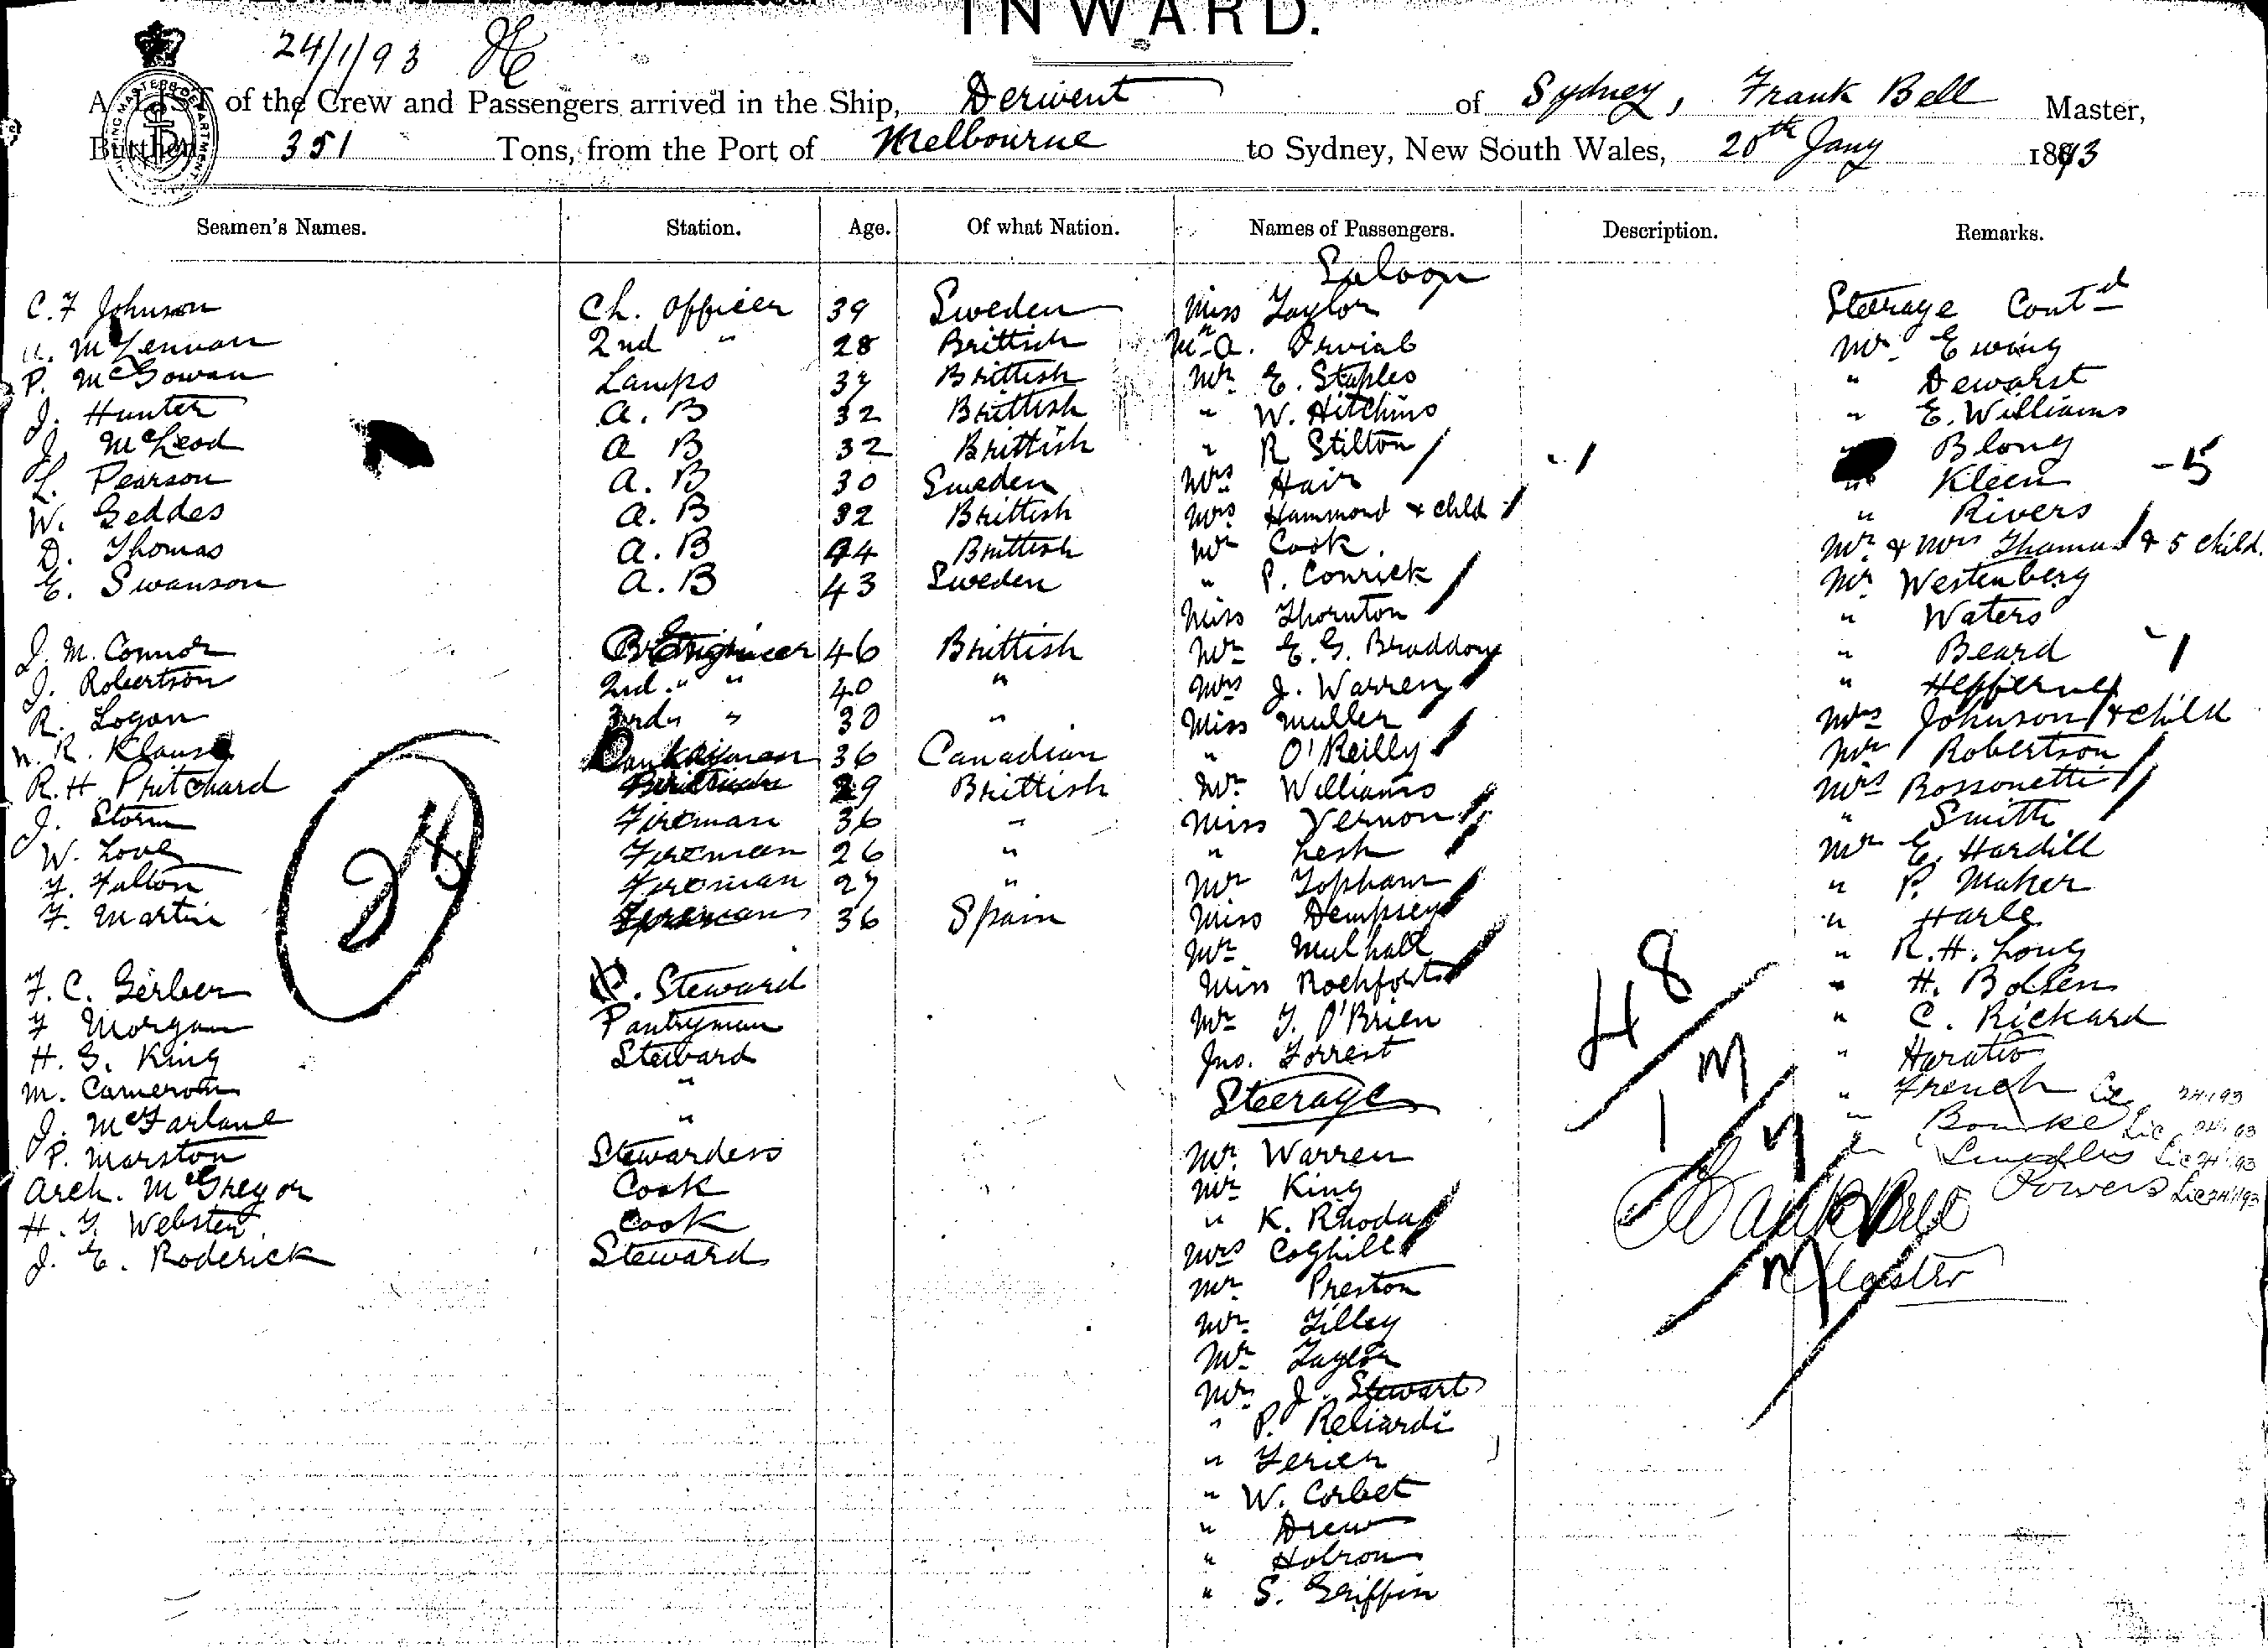 INWARD.
24/1/93
A LIST of the Crew and Passengers arrived in the Ship, Derwent of Sydney, Frank Bell Master,
Burthen 351 Tons, from the Port of Melbourne to Sydney, New South Wales, 20th Jany 1893
Seamen's Names. Station. Age. Of what Nation. Names of Passengers. Description. Remarks.
Saloon
C. F Johnson Ch. Officer 39 Sweden Miss Taylor Steerage Contd
McLennan 2nd " 28 Brittish A. Mr Ewing
P. McGowan Lamps 37 Brittish Mr E. Staples " Dewarst
J. Hunter A. B 32 Brittish " W. Hitchins " E. Williams
J. McLeod A B 32 Brittish " R Stilton - 1 Blong
L. Pearson A. B 30 Sweden Mrs Hair " Kleen - 5
W. Geddes A. B 32 Brittish Mrs Hammond & child " Rivers
D. Thomas A. B 44 Brittish Mr Cook. Mr & Mrs Thomas & 5 child.
E. Swanson A. B 43 Sweden " P. Conrick Mr Westenberg
Miss Thornton " Waters
J. M. Connor Engineer 46 Brittish Mr E. G. Braddon " Beard - 1
J. Robertson 2nd " " 40 " Mrs J. Warren "
R. Logan 3rd " " 30 " Miss Muller Mrs Johnson & child
W. R. Klause 36 Canadian " O'Reilly Mr Robertson
R. H. Pritchard 29 Brittish Mr Williams Mrs Bossonetti
J. Storm Fireman 36 " Miss Vernon " Smith
W. Love Fireman 26 " " Lesh Mr E. Hardill
F. Fulton Fireman 27 " Mr Topham " P. Maher
F. Martin Fireman 36 Spain Miss Dempsey " Harle
24
Mr Mulhall " R. H. Long
F. C. Gerber Steward Miss Rochfort " H. Bolsen
F Morgan Pantryman Mr T. O'Brien " C. Rickard
H. G. King Steward Jno. Forrest " Horatio
M. Cameron " Steerage " French Lic 24.1.93
J. McFarlane " " Bourke Lic 24.1.93
P. Marston Stewardess Mr Warren " Lic 24/1/93
Arch. McGregor Cook Mr King Powers Lic 24/1/93
H. Y. Webster Cook " K. Rhoda
J. E. Roderick Steward Mrs Coghill
48
1 M
Frank Bell
Master
Mr Preston
Mr Tilley
Mr Taylor
Mr J. Stewart
" P. Reliardi
" Ferier
" W. Corbet
" Drew
" Hobron
" S. Griffin